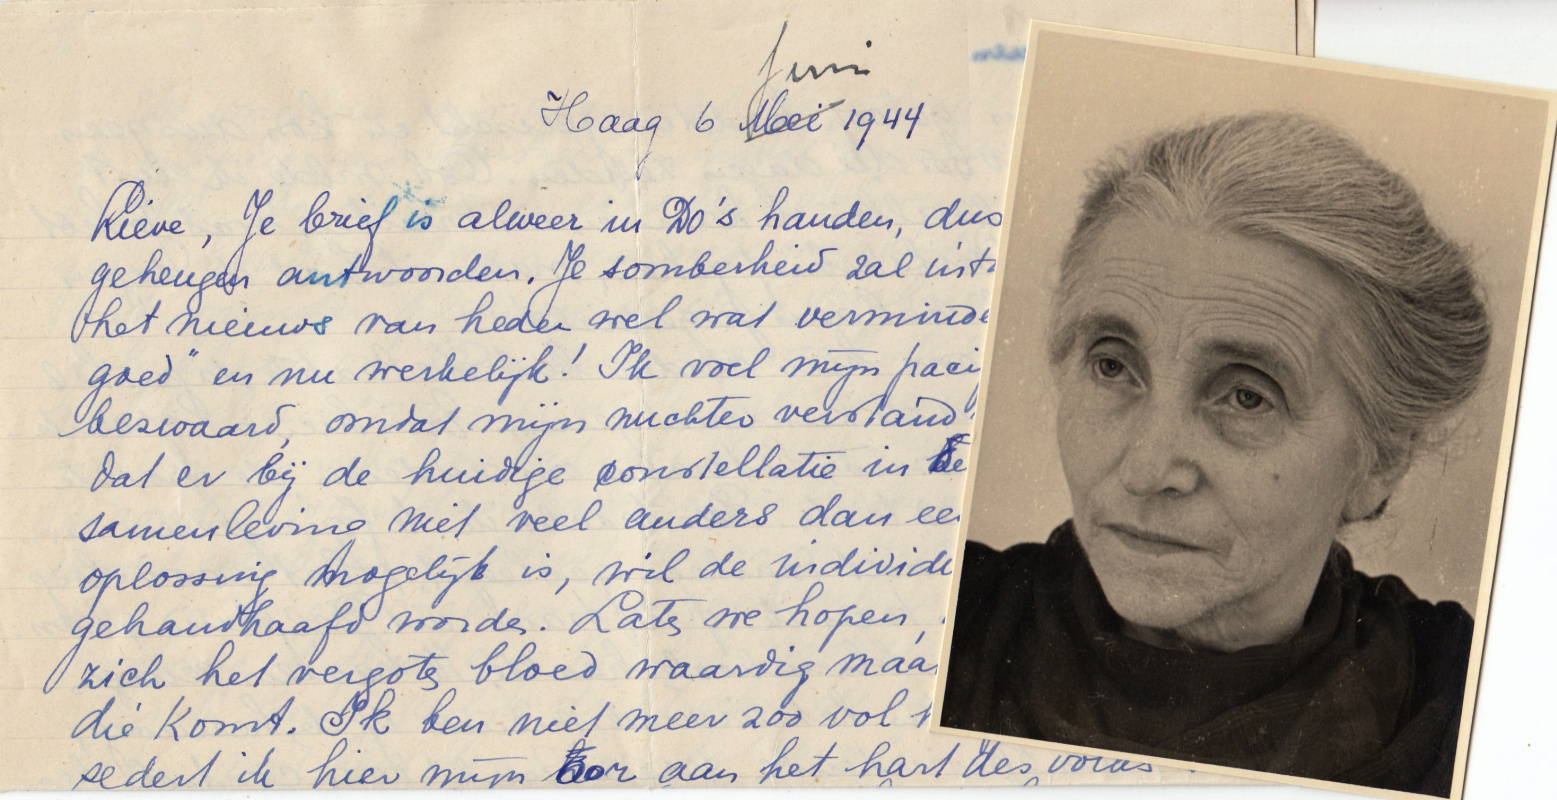 Juni
Haag 6 Mei 1944
Lieve, Je brief is alweer in Do's handen, dus
geheugen antwoorden. Je somberheid zal
het nieuws van heden wel wat
goed" en nu werkelijk! Ik voel mijn
bezwaard, omdat mijn nuchter verstand
dat er bij de huidige constellatie in de
samenleving niet veel anders dan
oplossing mogelijk is, wil de
gehandhaafd worden. Laten we hopen,
zich het vergoten bloed waardig
die komt. Ik ben niet meer zoo vol
sedert ik hier mijn oor aan het hart des volks